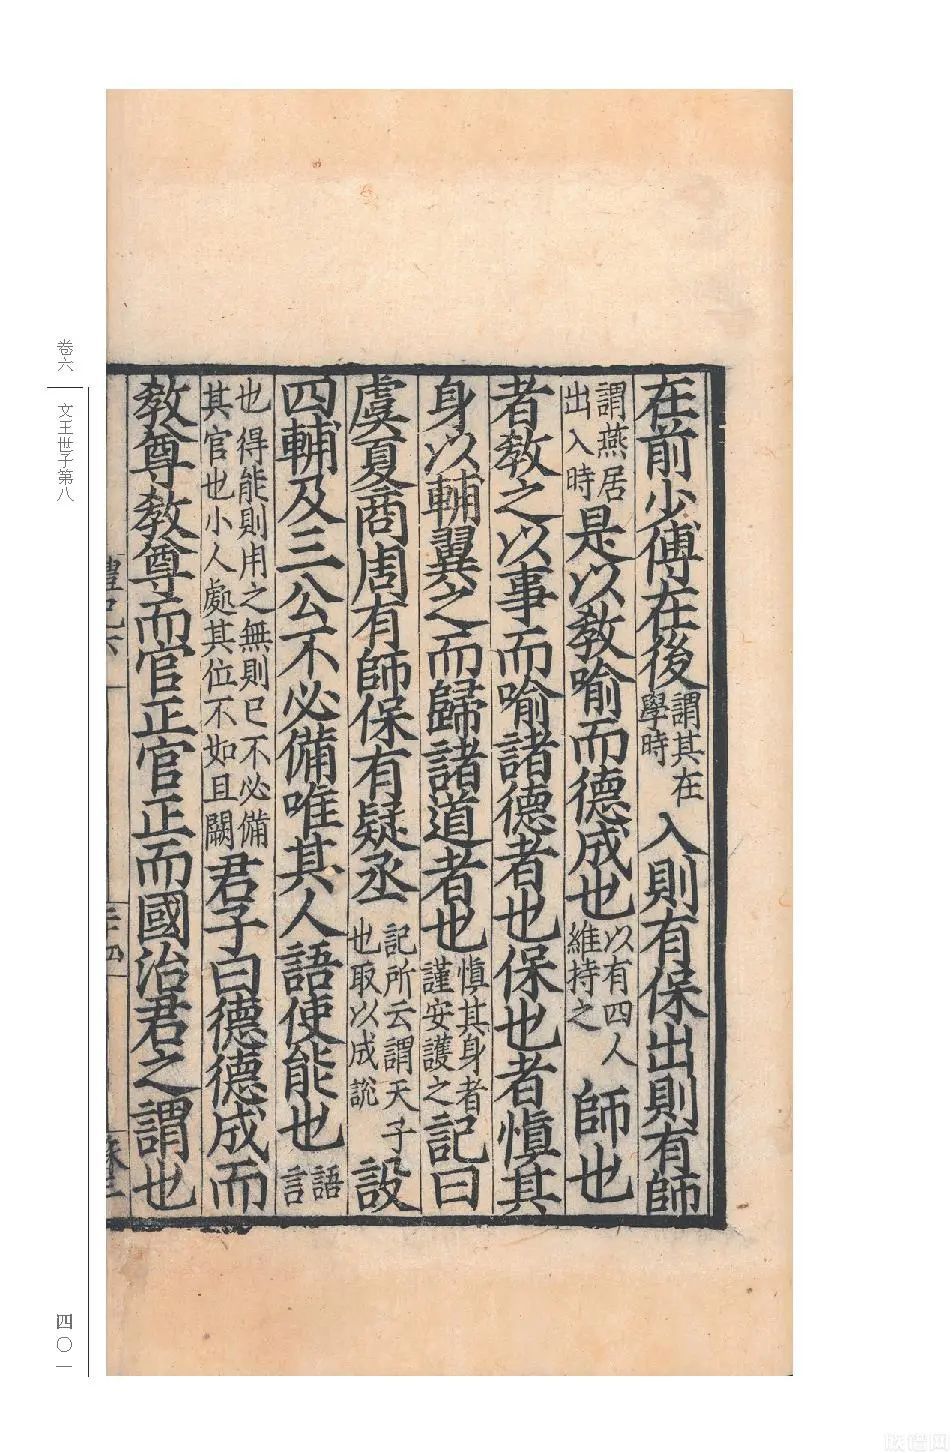 在前少傅在後謂其在學時入則有保出則有師
謂燕居出入時是以教喻而德成也以有四人維持之師也
者教之以事而喻諸德者也保也者慎其
身以輔翼之而歸諸道者也慎其身者謹安護之記曰
虞夏商周有師保有疑丞記所云謂天子也取以成說設
四輔及三公不必備唯其人語使能也語言
也得能則用之無則已不必備其官也小人處其位不如且闕君子曰德德成而
教尊教尊而官正官正而國治君之謂也
卷六
文王世子第八
四〇一